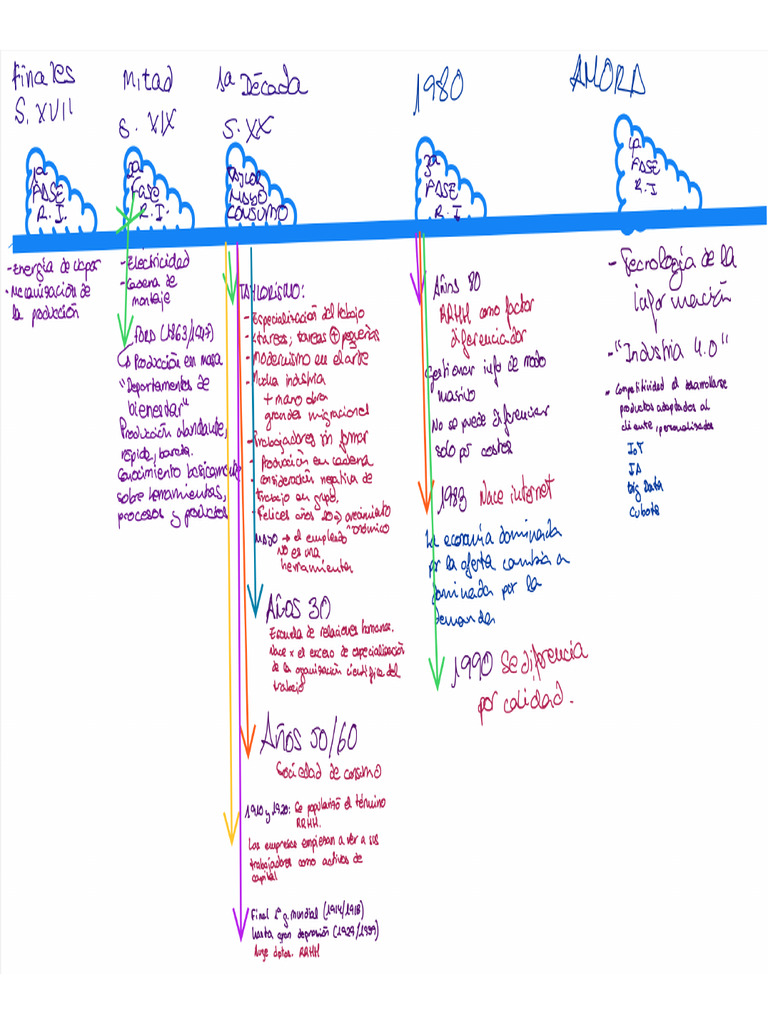 Finales
S. XVII
Mitad
S. XIX
1a Década
S. XX
1980
AHORA
1ª
FASE
R. I.
2ª
Fase
R. I.
TAYLOR
MAYO
CONSUMO
3ª
FASE
R. I
4ª
FASE
R. I.
- Energía de vapor
- Mecanización de
la producción
- Electricidad
- Cadena de
montaje
FORD (1863/1947)
↳ Producción en masa
"Departamentos de
bienestar"
Producción abundante,
rápida, barata.
Conocimiento básicamente
sobre herramientas,
procesos y productos
TAYLORISMO:
- Especialización del trabajo
- tareas; tareas + pequeñas
- Modernismo en el arte
- Mucha industria
+ mano obra
grandes migracional
- Trabajadores sin formar
- Producción en cadena
- Consideración negativa de
trabajo en grupo.
- Felices años 20 → crecimiento
económico
MAYO → el empleado
NO es una
herramienta
AÑOS 30
Escuela de relaciones humanas.
Nace x el exceso de especialización
de la organización científica del
trabajo
AÑOS 50/60
Sociedad de consumo
1910 y 1920: Se popularizó el término
RRHH.
Las empresas empiezan a ver a sus
trabajadores como activos de
capital
Final 1ª g. mundial (1914/1918)
hasta gran depresión (1929/1939)
Auge dptos. RRHH
Años 80
RRHH como factor
diferenciador
Gestionar info de modo
masivo
No se puede diferenciar
solo por costes
1983 Nace internet
La economía dominada
por la oferta cambia a
dominada por la
demanda
1990 Se diferencia
por calidad.
- Tecnología de la
información
- "Industria 4.0"
- Competitividad al desarrollarse
productos adaptados al
cliente, personalizados
IoT
IA
Big Data
Cubots